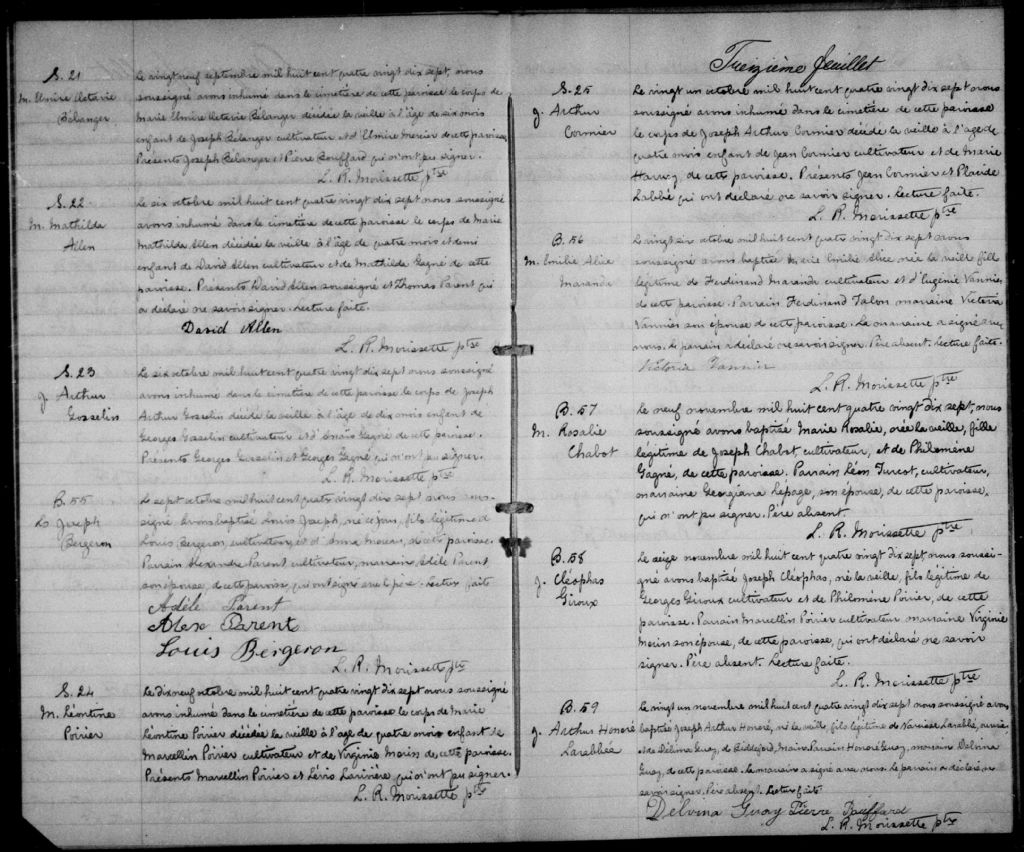 S. 21
M. Elmire Octavie
Bélanger
Le vingt neuf septembre mil huit cent quatre vingt dix sept, nous
soussigné avons inhumé dans le cimetière de cette paroisse le corps de
Marie Elmire Octavie Bélanger décédée la veille à l'âge de six mois
enfant de Joseph Bélanger cultivateur et d'Elmire Mercier de cette paroisse.
Présents Joseph Bélanger et Pierre Bouffard qui n'ont pu signer.
L. R. Morissette ptre
S. 22
M. Mathilda
Allen
Le six octobre mil huit cent quatre vingt dix sept nous soussigné
avons inhumé dans le cimetière de cette paroisse le corps de Marie
Mathilda Allen décédée la veille à l'âge de quatre mois et demi
enfant de David Allen cultivateur et de Mathilde Gagné de cette
paroisse. Présents David Allen soussigné et Thomas Parent qui
a déclaré ne savoir signer. Lecture faite.
David Allen
L. R. Morissette ptre
S. 23
J. Arthur
Gosselin
Le six octobre mil huit cent quatre vingt dix sept nous soussigné
avons inhumé dans le cimetière de cette paroisse le corps de Joseph
Arthur Gosselin décédé la veille à l'âge de dix mois enfant de
Georges Gosselin cultivateur et d'Anaïs Gagné de cette paroisse.
Présents Georges Gosselin et Georges Gagné qui n'ont pu signer.
L. R. Morissette ptre
B. 55
Ls Joseph
Bergeron
Le sept octobre mil huit cent quatre vingt dix sept nous sous-
signé avons baptisé Louis Joseph, né ce jour, fils légitime de
Louis Bergeron cultivateur et d'Anna de cette paroisse.
Parrain Alexandre Parent cultivateur, marraine Adèle Parent
son épouse de cette paroisse qui ont signé le père. Lecture faite
Adèle Parent
Alex Parent
Louis Bergeron
L. R. Morissette ptre
S. 24
M. Léontine
Poirier
Le dix neuf octobre mil huit cent quatre vingt dix sept nous soussigné
avons inhumé dans le cimetière de cette paroisse le corps de Marie
Léontine Poirier décédée la veille à l'âge de quatre mois enfant de
Marcellin Poirier cultivateur et de Virginie Morin de cette paroisse.
Présents Marcellin Poirier et Lévis Larivière qui n'ont pu signer.
L. R. Morissette ptre
Treizième feuillet
S. 25
J. Arthur
Cormier
Le vingt un octobre mil huit cent quatre vingt dix sept nous
soussigné avons inhumé dans le cimetière de cette paroisse
le corps de Joseph Arthur Cormier décédé la veille à l'age de
quatre mois enfant de Jean Cormier cultivateur et de Marie
Harvey de cette paroisse. Présents Jean Cormier et Placide
Labbé qui ont déclaré ne savoir signer. Lecture faite.
L. R. Morissette ptre
B. 56
M. Emilie Alice
Maranda
Le vingt six octobre mil huit cent quatre vingt dix sept nous
soussigné avons baptisé Marie Emilie Alice née la veille fille
légitime de Ferdinand Maranda cultivateur et d'Eugénie Vannier
de cette paroisse. Parrain Ferdinand Talon marraine Victoria
Vannier son épouse de cette paroisse. La marraine a signé avec
nous. Le parrain a déclaré ne savoir signer. Père absent. Lecture faite.
Victoria Vannier
L. R. Morissette ptre
B. 57
M. Rosalie
Chabot
Le neuf novembre mil huit cent quatre vingt dix sept, nous
soussigné avons baptisé Marie Rosalie, née la veille, fille
légitime de Joseph Chabot, cultivateur, et de Philomène
Gagné, de cette paroisse. Parrain Léon Turcot, cultivateur,
marraine Georgiana Lepage, son épouse, de cette paroisse,
qui n'ont pu signer. Père absent.
L. R. Morissette ptre
B. 58
J. Cléophas
Giroux
Le seize novembre mil huit cent quatre vingt dix sept nous soussi-
gné avons baptisé Joseph Cléophas, né la veille, fils légitime de
Georges Giroux cultivateur et de Philomène Poirier, de cette
paroisse. Parrain Marcellin Poirier cultivateur marraine Virginie
Morin son épouse, de cette paroisse, qui ont déclaré ne savoir
signer. Père absent. Lecture faite.
L. R. Morissette ptre
B. 59
J. Arthur Honoré
Larabbée
Le vingt un novembre mil huit cent quatre vingt dix sept nous soussigné avons
baptisé Joseph Arthur Honoré, né la veille, fils légitime de Narcisse Larabbé,
et de Délima Guay, de Biddeford, Maine. Parrain Honoré Guay, marraine Delvina
Guay, de cette paroisse. La marraine a signé avec nous. Le parrain a déclaré ne
savoir signer. Père absent. Lecture faite
Delvina Guay Pierre Bouffard
L. R. Morissette ptre